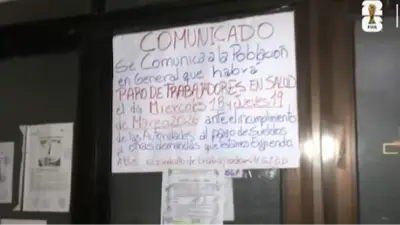 COMUNICADO
Se Comunica a la Población
en General que habrá
PARO DE TRABAJADORES EN SALUD
el día Miercoles 18 y Jueves 19
de Marzo 2026 ante el incumplimiento
de las Autoridades al pago de Sueldos
y otras demandas que estamos Exigiendo
FIFA